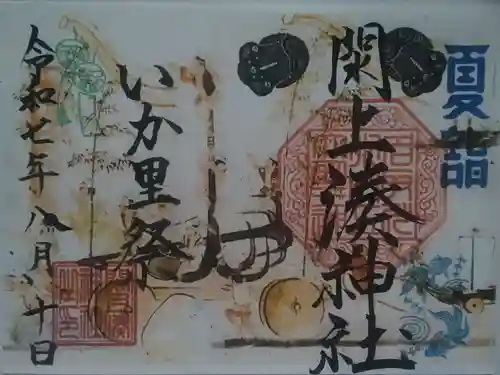 夏詣
閖上湊神社
いか里祭
令和七年八月八十日